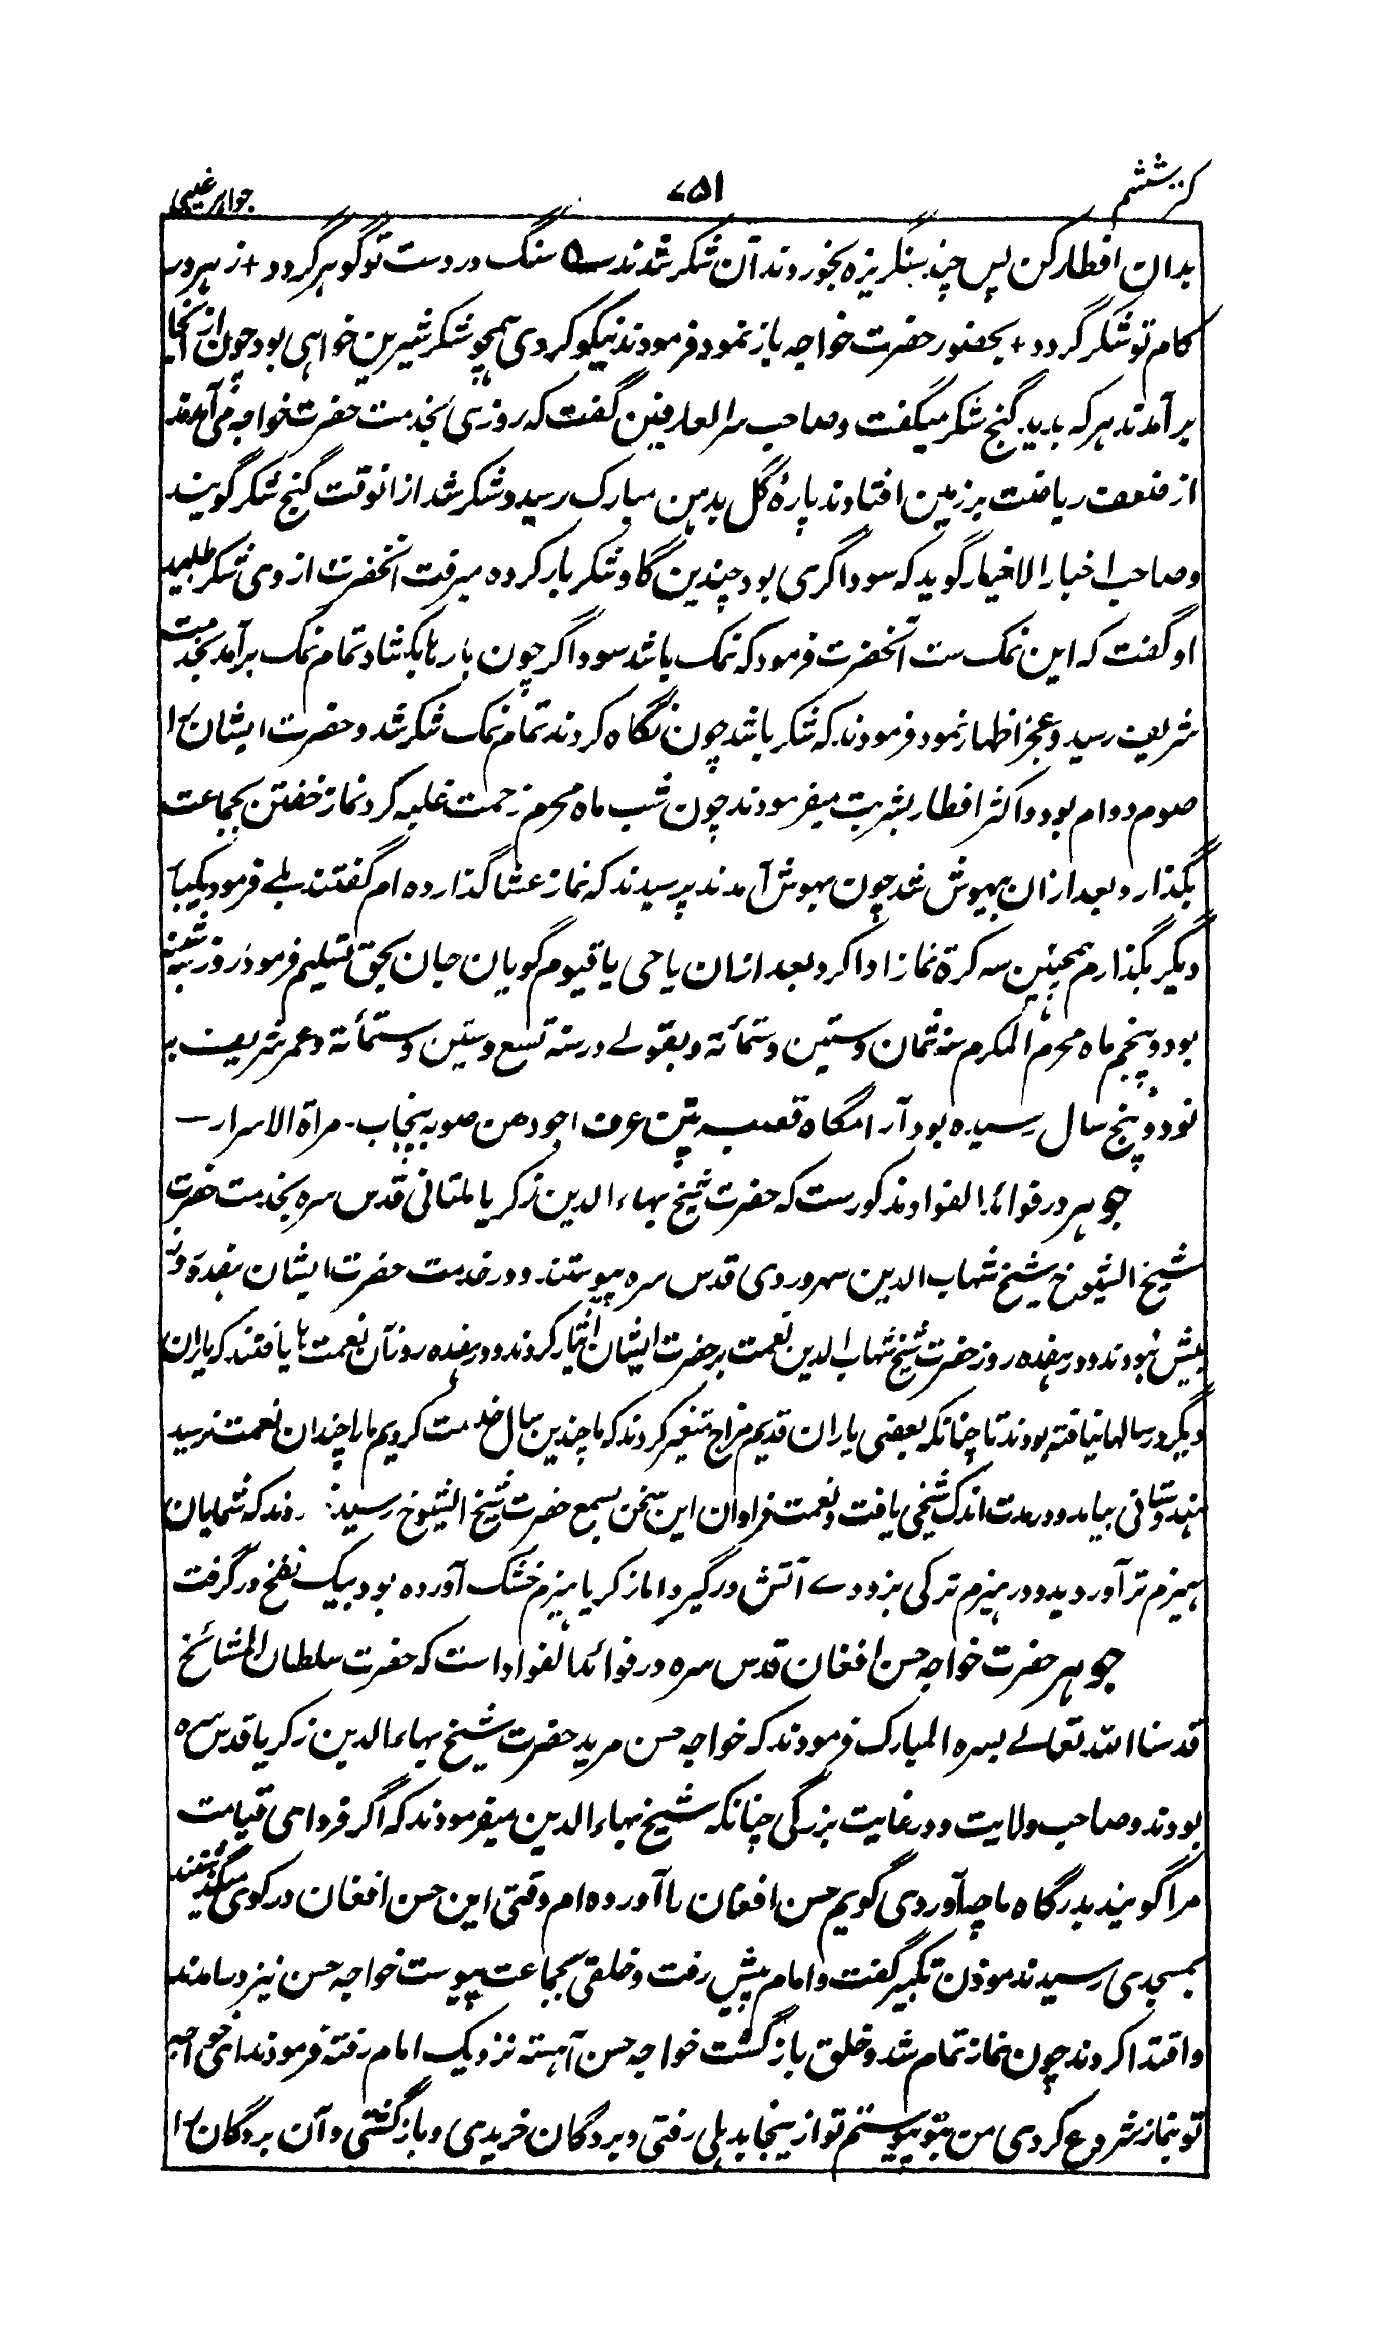 کنز ششم
۷۵۱
جواہر غیبی
بدان افطار کن پس چند سنگریزہ بخوردند آن شکر شدند سہ سنگ در دست تو گوہر گردد + زہر در
کام تو شکر گردد + بحضور حضرت خواجہ باز نمود فرمودند نیکو کردی ہمچو شکر شیرین خواہی بود چون از آنجا
بر آمدند ہر کہ بدید گنج شکر میگفت و صاحب سر العارفین گفت کہ روزی بخدمت حضرت خواجہ می آمدند
از ضعف ریاضت بر زمین افتادند پارۂ گل بدہن مبارک رسید و شکر شد از انوقت گنج شکر گویند
و صاحب اخبار الاخیار گوید کہ سوداگری بود چندین گاو شکر بار کردہ میرفت آنحضرت از وی شکر طلبید
او گفت کہ این نمک ست آنحضرت فرمود کہ نمک باشد سوداگر چون بارہا بکشاد تمام نمک برآمد بخدمت
شریف رسید و عجز اظہار نمود فرمودند کہ شکر باشد چون نگاہ کردند تمام نمک شکر شد و حضرت ایشان را
صوم دوام بود و اکثر افطار بشربت میفرمودند چون شب ماہ محرم زحمت غلبہ کرد نماز خفتن بجماعت
بگذارد و بعد ازان بیہوش شد چون بہوش آمدند پرسیدند کہ نماز عشا گذاردہ ام گفتند بلے فرمود یکبار
دیگر بگذارم ہمچنین سہ کرۃ نماز ادا کرد بعد ازان یا حی یا قیوم گویان جان بحق تسلیم فرمود روز شنبہ
بود و پنجم ماہ محرم المکرم سنہ ثمان و ستین و ستمائۃ و بقولے در سنہ تسع و ستین و ستمائۃ و عمر شریف بہ
نود و پنج سال رسیدہ بود آرامگاہ قصبہ پتن عرف اجودھن صوبہ پنجاب - مرآۃ الاسرار —
جوہر در فوائد الفواد مذکورست کہ حضرت شیخ بہاء الدین زکریا ملتانی قدس سرہ بخدمت حضرت
شیخ الشیوخ شیخ شہاب الدین سہروردی قدس سرہ پیوستند و در خدمت حضرت ایشان ہفدہ روز
بیش نبودند و در ہفدہ روز حضرت شیخ شہاب الدین نعمت بر حضرت ایشان ایثار کردند و در ہفدہ روز آن نعمت ہا یافتند کہ یاران
دیگر در سالہا نیافتہ بودند تا چنانکہ بعضی یاران قدیم مزاج متغیر کردند کہ ما چندین سال خدمت کردیم مارا چندان نعمت نرسید
ہندوستانی بیامد و در مدت اندک شیخی یافت و نعمت فراوان این سخن بسمع حضرت شیخ الشیوخ رسید فرمودند کہ شمایان
ہیزم تر آوردید و در ہیزم تر کی بزودے آتش درگیرد اما زکریا ہیزم خشک آوردہ بود بیک نفخ درگرفت
جوہر حضرت خواجہ حسن افغان قدس سرہ در فوائد الفواد است کہ حضرت سلطان المشائخ
قدسنا اللہ تعالے بسرہ المبارک فرمودند کہ خواجہ حسن مرید حضرت شیخ بہاء الدین زکریا قدس سرہ
بودند و صاحب ولایت و در غایت بزرگی چنانکہ شیخ بہاء الدین میفرمودند کہ اگر فردای قیامت
مرا گویند بدرگاہ ما چہ آوردی گویم حسن افغان را آوردہ ام وقتی این حسن افغان در کوی میگذشتند
بمسجدی رسیدند موذن تکبیر گفت و امام پیش رفت و خلقی بجماعت پیوست خواجہ حسن نیز در آمدند
و اقتدا کردند چون نماز تمام شد و خلق باز گشت خواجہ حسن آہستہ نزدیک امام رفتہ فرمودند ای خواجہ
تو نماز شروع کردی من بتو پیوستم تو از ینجا بدہلی رفتی و بردگان خریدی و بازگشتی و آن بردگان را